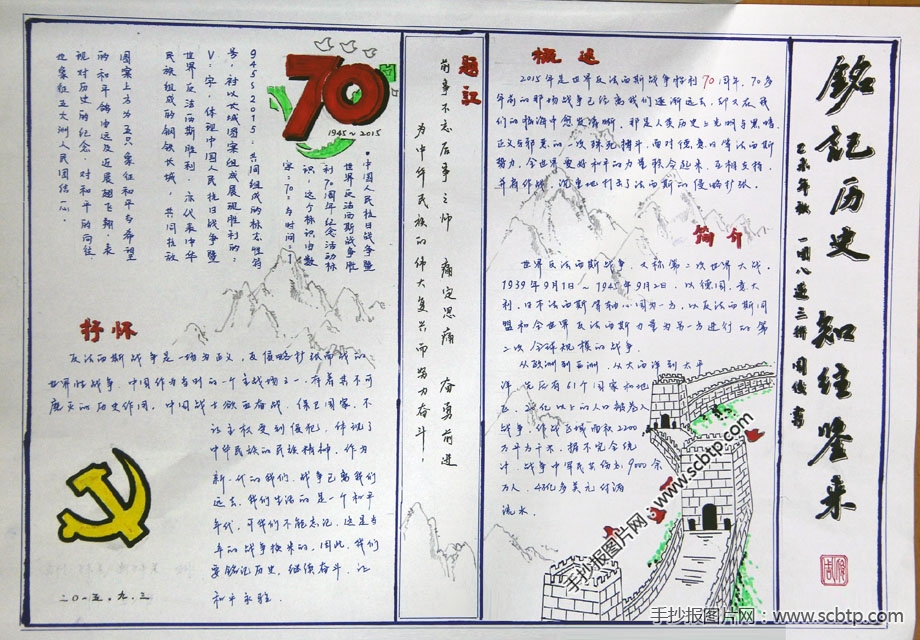 銘記历史 知往鉴来
概述
2015年是世界反法西斯战争胜利70周年,70多
年前的那场战争已经离我们逐渐远去,却又在我
们的脑海中愈发清晰,那是人类历史上光明与黑暗、
正义与邪恶的一次殊死搏斗,面对德意日等法西斯
势力,全世界爱好和平的力量联合起来,互相支持,
并肩作战,沉重地打击了法西斯的侵略扩张。
简介
世界反法西斯战争,又称第二次世界大战,
1939年9月1日~1945年9月2日,以德国,意大
利,日本法西斯等轴心国为一方,以反法西斯同
盟和全世界反法西斯力量为另一方进行的第
二次全球规模的战争。
从欧洲到亚洲,从大西洋到太平
洋,先后有61个国家和地
区,
亿以上的人口被卷入
战争,作战区域面积2200
万平方千米,据不完全统
计,战争中军民共伤亡9000余
万人,4万亿多美元付诸
流水。
题记
前事不忘后事之师 痛定思痛 奋勇前进
为中华民族的伟大复兴而努力奋斗!
70
1945~2015
·中国人民抗日战争暨
世界反法西斯战争胜
利70周年纪念活动标
识,这个标识由数
字:"70"与时间:"1
945~2015"共同组成的标志性符
号,衬以长城图案组成展现胜利的:
V:字,体现中国人民抗日战争暨
世界反法西斯胜利,亦代表中华
民族组成的钢铁长城,共同抵敌
图案上方为五只象征和平与希望
的和平鸽由远及近展翅飞翔,表
现对历史的纪念,对和平的向往
世象征五大洲人民团结一心。
抒怀
反法西斯战争是一场为正义,反侵略扩张而战的
世界性战争,中国作为当时的一个主战场之一,有着其不可
磨灭的历史作用,中国战士欲血奋战,保卫国家,不
让主权受到侵犯,体现了
中华民族的民族精神,作为
新一代的我们,战争已离我们
远去,我们生活的是一个和平
年代,可我们不能忘记,这是当
年的战争换来的,因此,我们
要铭记历史,继续奋斗,让
和平永驻。
二〇一五.九.三
手抄报图片网:www.scbtp.com
手抄报图片网:www.scbtp.com